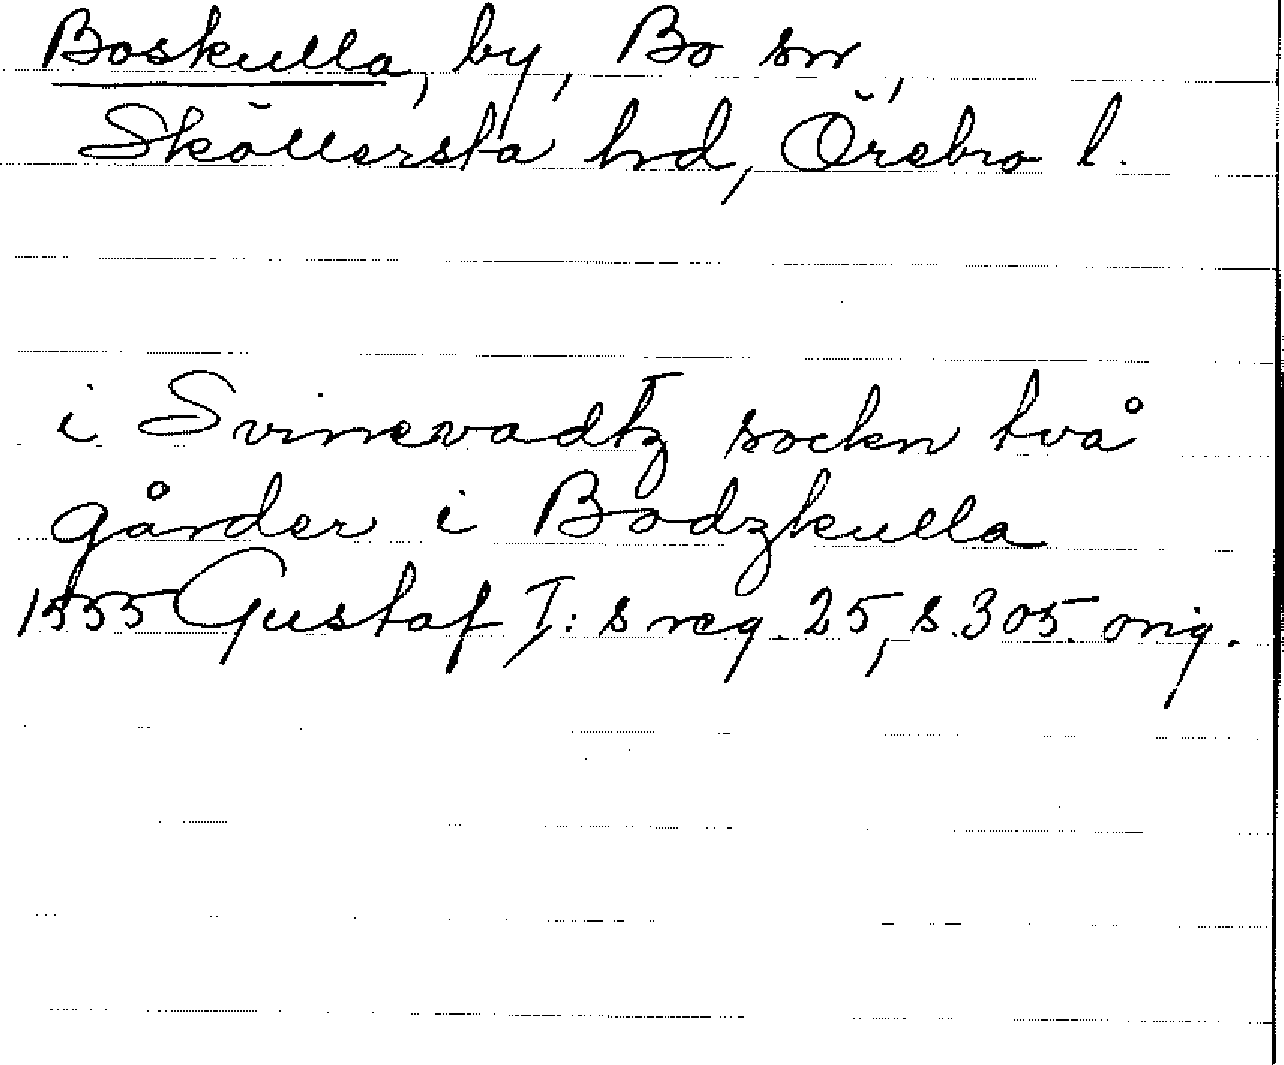 Boskulla, by, Bo sn,
Sköllersta hd, Örebro l.
i Svinevadtz sockn två
gårder i Bodzkulla
1555 Gustaf I:s reg. 25, s. 305. orig.